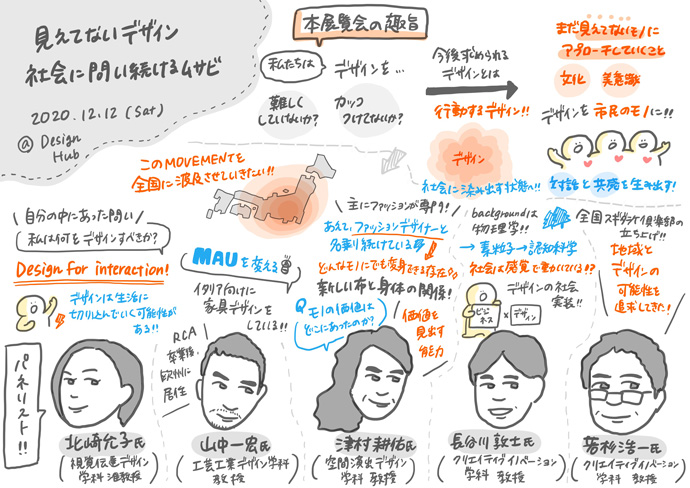 見えてないデザイン
社会に問い続けるムサビ
2020.12.12 (Sat)
@ Design
Hub
本展覧会の趣旨
私たちは
デザインを…
難しく
していないか?
カッコ
つけてないか?
今後求められる
デザインとは
行動するデザイン!!
デザイン
社会に染み出す状態へ!!
まだ見えてないモノに
アプローチしていくこと
文化
美意識
デザインを市民のモノに!!
対話と共感を生み出す!
このMOVEMENTを
全国に波及させていきたい!!
MAUを変える
自分の中にあった問い
私は何をデザインすべきか?
Design for interaction!
デザインは生活に
切り込んでいく可能性が
ある!!
パネリスト!!
北崎允子氏
(視覚伝達デザイン
学科 准教授)
イタリア向けに
家具デザインを
している!!
RCA
卒業後、
欧州に
居住
山中一宏氏
(工芸工業デザイン学科
教授)
主にファッションが専門!
あえて、ファッションデザイナーと
名乗り続けている
どんなモノにでも変身できる存在。
新しい布と身体の関係!
Q モノの価値は
どこにあったのか?
価値を
見出す
能力
津村耕佑氏
(空間演出デザイン
学科 教授)
backgroundは
物理学!!
→素粒子→認知科学
社会は感覚で動いている!?
デザインの社会
実装!!
ビジネス×デザイン
長谷川敦士氏
(クリエイティブイノベーション
学科 教授)
全国スギダラケ倶楽部の
立ち上げ!!
地域と
デザインの
可能性を
追求してきた!
若杉浩一氏
(クリエイティブイノベーション
学科 教授)